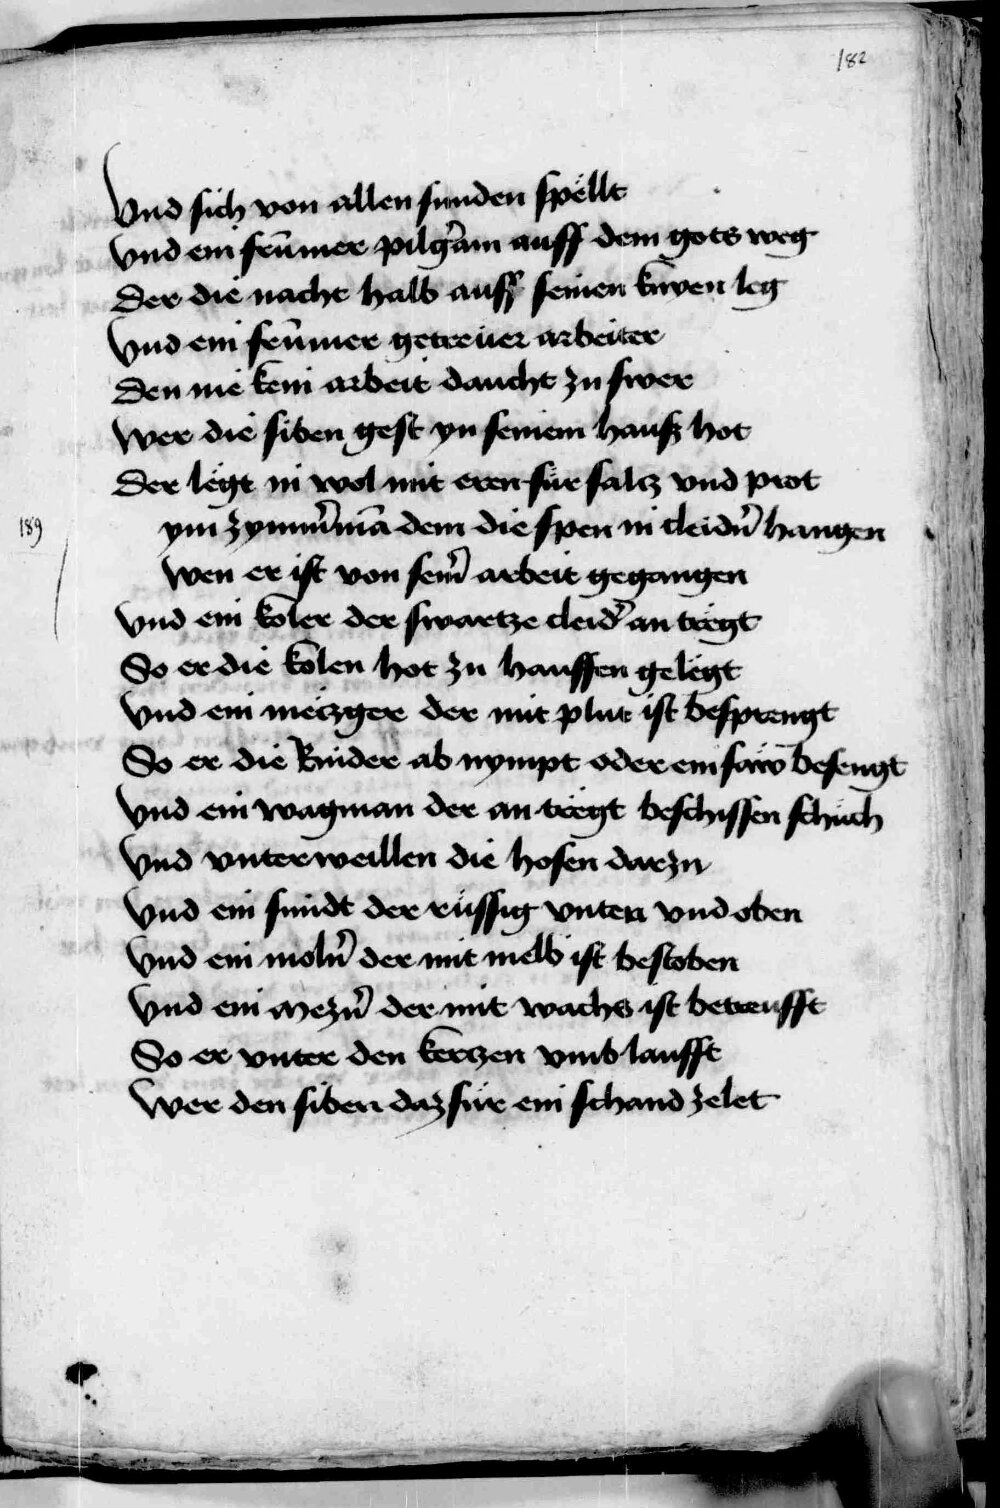 182
Vnd sich von allen sunden spëllt
Vnd ein frũmer pilgram auff dem gots weg
Der die nacht halb auff seinen knyen leg
Vnd ein frũmer getreüer arbeiter
Den nie kein arbeit daucht zu swer
Wer die siben gest yn seinem hauß hot
Der lëgt in wol mit eren für salcz vnd prot
189
ym zymm̃mã dem die spen in cleidñ hangen
Wen er ist von sein̄ arbeit gegangen
Vnd ein koler der swartze cleid̄ an trëgt
So er die kolen hot zu hauffen gelëgt
Vnd ein meczger der mit plut ist besprengt
So er die Rinder ab nympt oder ein saw besengt
Vnd ein wagman der an trëgt beschissen schuch
Vnd vnterweillen die hosen darzu
Vnd ein smidt der rüssig vnten vnd oben
Vnd ein molñ der mit melb ist bestoben
Vnd ein mezñ der mit wachs ist betreufft
So er vnter den kerczen vmb laufft
Wer den siben daz für ein schand zelet